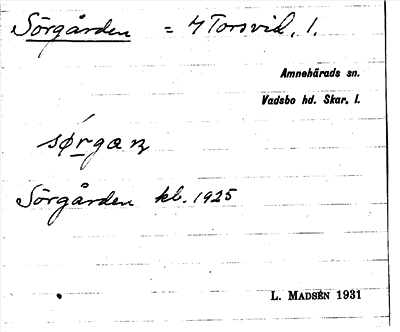 Sörgården = 4 Torsvid, 1.
Amnehärads sn.
Vadsbo hd. Skar. l.
Sörgården kb. 1925
L. MADSÉN 1931